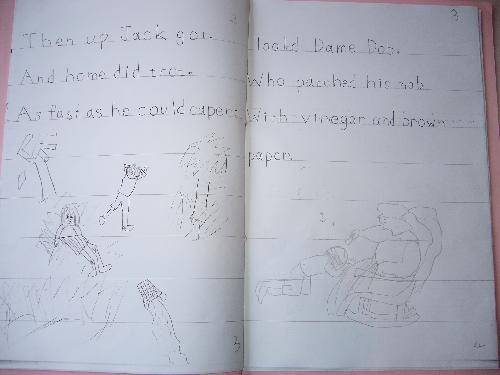 3
Then up Jack got.
And home did trot.
As fast as he could caper.
3
To old Dame Dob.
Who patched his nob
With vinegar and brown
paper.